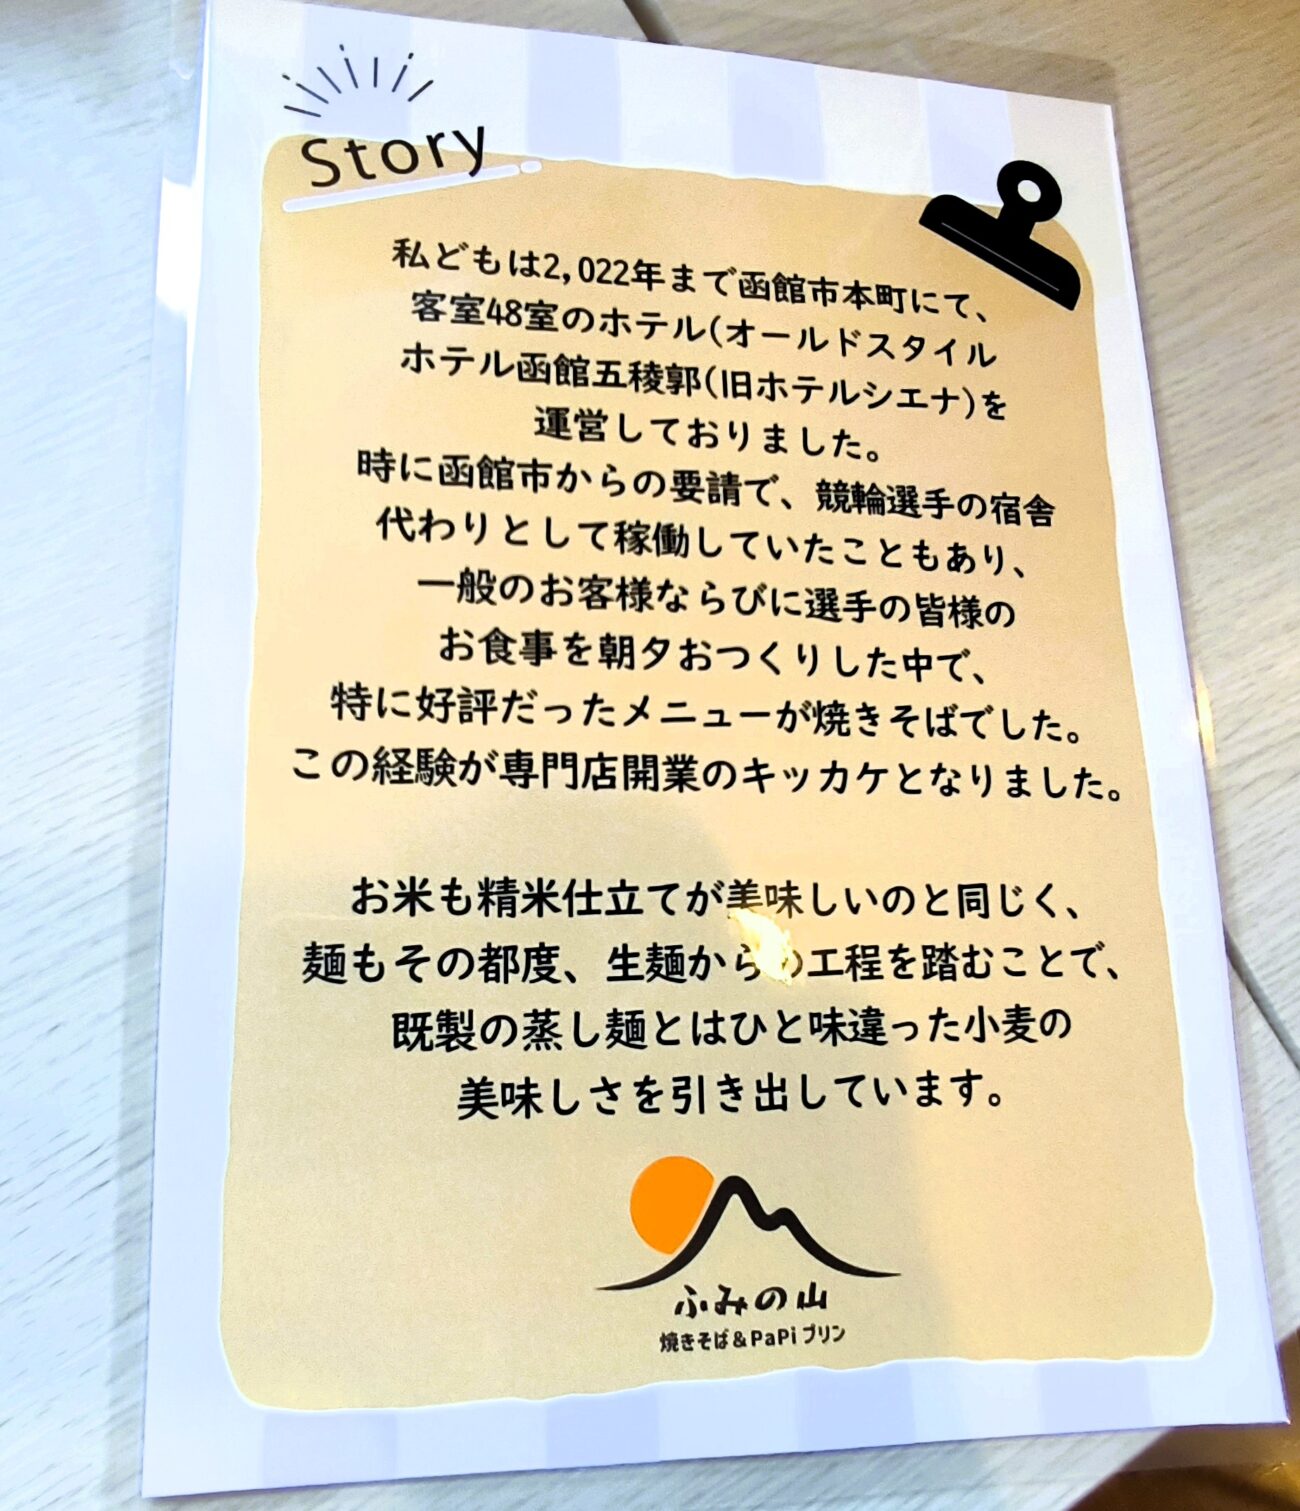 Story
私どもは2,022年まで函館市本町にて、
客室48室のホテル(オールドスタイル
ホテル函館五稜郭(旧ホテルシエナ)を
運営しておりました。
時に函館市からの要請で、競輪選手の宿舎
代わりとして稼働していたこともあり、
一般のお客様ならびに選手の皆様の
お食事を朝夕おつくりした中で、
特に好評だったメニューが焼きそばでした。
この経験が専門店開業のキッカケとなりました。
お米も精米仕立てが美味しいのと同じく、
麺もその都度、生麺からの工程を踏むことで、
既製の蒸し麺とはひと味違った小麦の
美味しさを引き出しています。
ふみの山
焼きそば&PaPiプリン